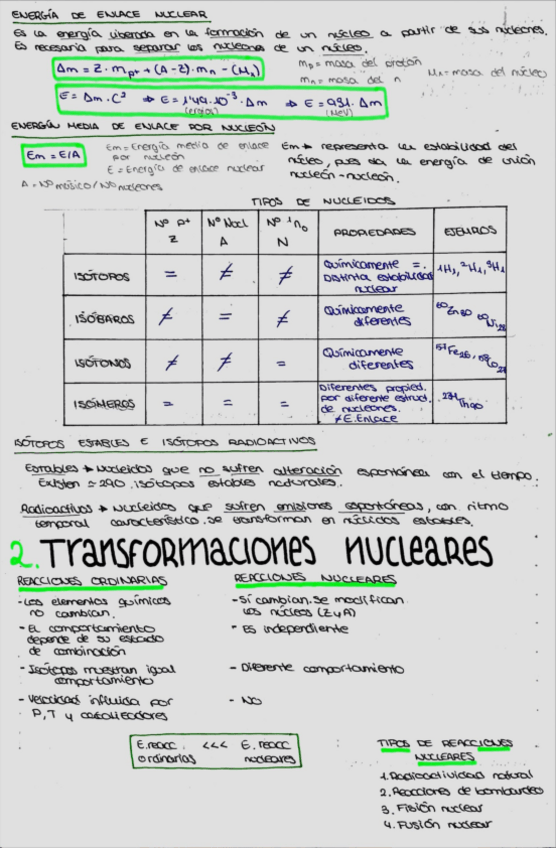 ENERGÍA DE ENLACE NUCLEAR
Es la energía liberada en la formación de un núcleo a partir de sus nucleones.
Es necesaria para separar los nucleones de un núcleo.
Δm = Z · mp+ + (A-Z) · mn - (Mn)
mp = masa del protón
mn = masa del n
Mn = masa del núcleo
E = Δm · C² ⇒ E = 1'49·10⁻³ · Δm ⇒ E = 931 · Δm
(ergios) (MeV)
ENERGÍA MEDIA DE ENLACE POR NUCLEÓN
Em = E/A
Em = Energía media de enlace
por nucleón
E = Energía de enlace nuclear
A = Nº másico / Nº nucleones
Em → representa la estabilidad del
núcleo, pues da la energía de unión
nucleón-nucleón.
TIPOS DE NUCLEIDOS
Nº P+ Z | Nº Nucl A | Nº ¹n₀ N | PROPIEDADES | EJEMPLOS
ISÓTOPOS | = | ≠ | ≠ | Químicamente =. Distinta estabilidad nuclear | ¹H₁, ²H₁, ³H₁
ISÓBAROS | ≠ | = | ≠ | Químicamente diferentes | ⁶⁰Zn₃₀ ⁶⁰Ni₂₈
ISÓTONOS | ≠ | ≠ | = | Químicamente diferentes | ⁵⁷Fe₂₆, ⁵⁸Co₂₇
ISÓMEROS | = | = | = | Diferentes propied. por diferente estruct. de nucleones. ≠ E. Enlace | ²³⁴Th₉₀
ISÓTOPOS ESTABLES E ISÓTOPOS RADIOACTIVOS
Estables → Nucleidos que no sufren alteración espontánea con el tiempo.
Existen ≃ 290 isótopos estables naturales.
Radioactivos → Nucleidos que sufren emisiones espontáneas, con ritmo
temporal característico. Se transforman en núclidos estables.
2. Transformaciones nucleares
REACCIONES ORDINARIAS
- Los elementos químicos
no cambian.
- El comportamiento
depende de su estado
de combinación
- Isótopos muestran igual
comportamiento
- Velocidad influida por
P, T y catalizadores
REACCIONES NUCLEARES
- Sí cambian. Se modifican
los núcleos (Z y A)
- Es independiente
- Diferente comportamiento
- NO
E. reacc. <<< E. reacc
ordinarias nucleares
TIPOS DE REACCIONES
NUCLEARES
1. Radioactividad natural
2. Reacciones de bombardeo
3. Fisión nuclear
4. Fusión nuclear